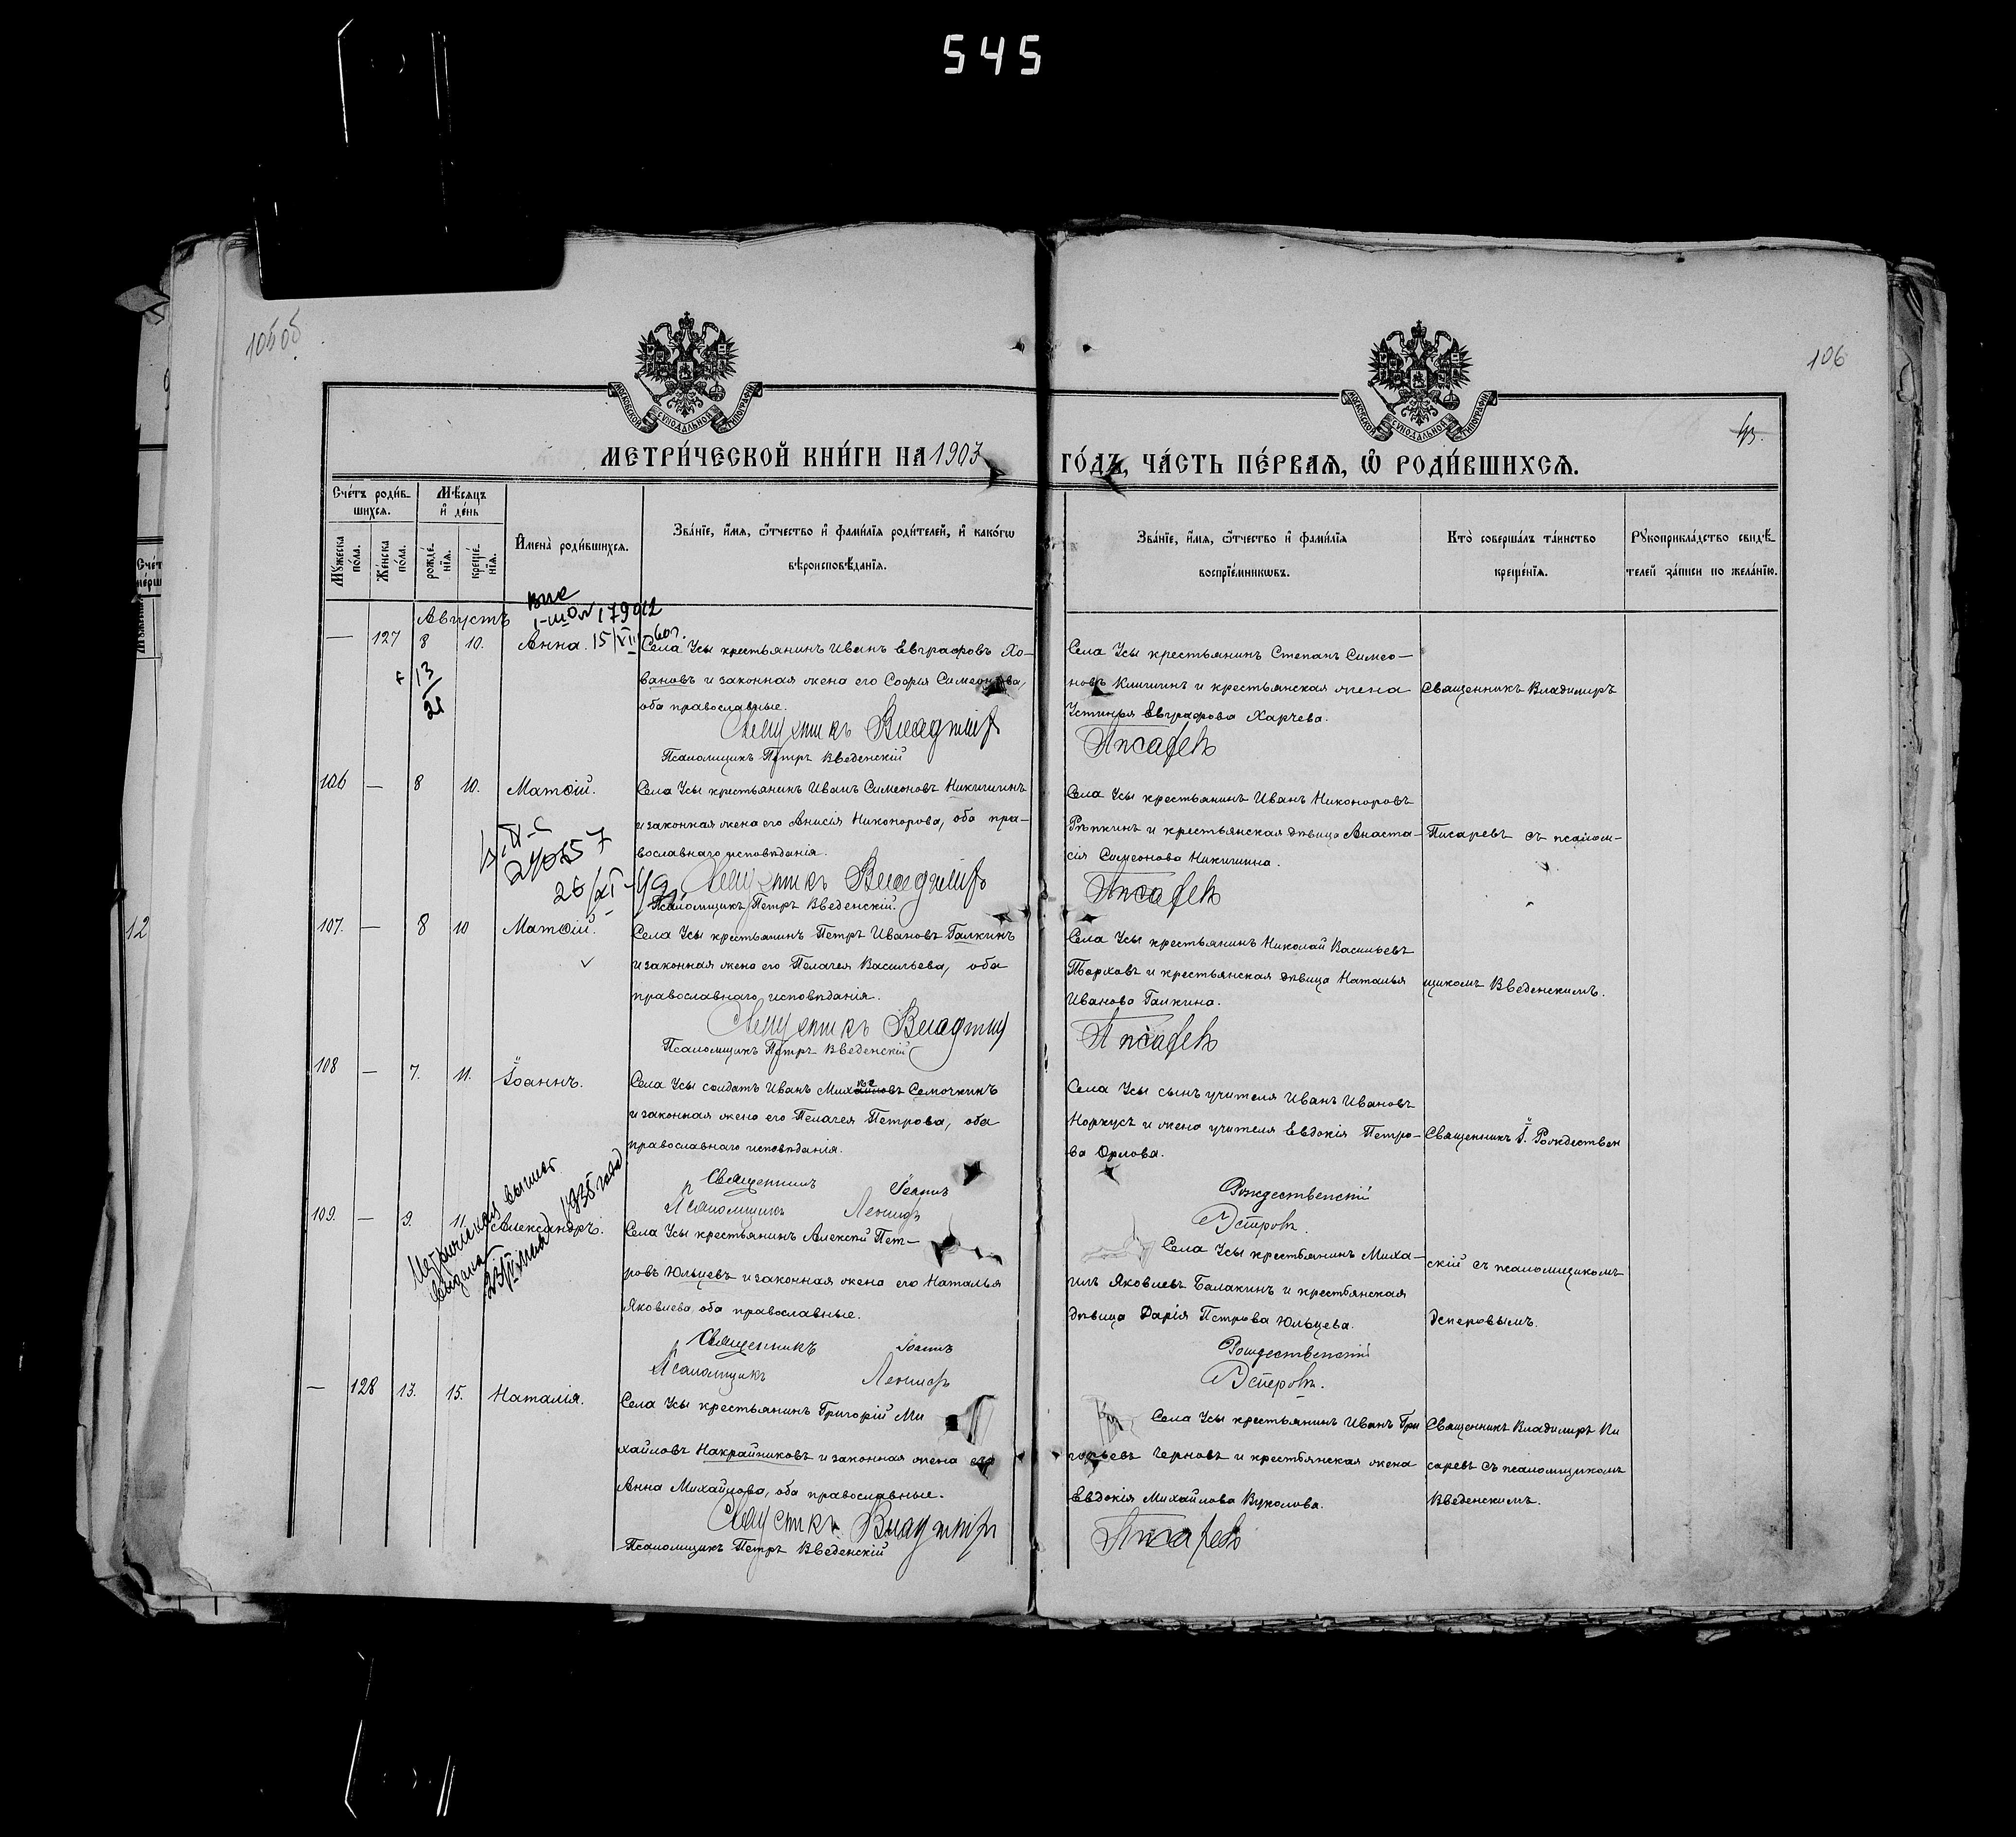 545
105об
106
МОСКОВСКОЙ СѴНОДАЛЬНОЙ ТИПОГРАФІИ
МОСКОВСКОЙ СѴНОДАЛЬНОЙ ТИПОГРАФІИ
МЕТРИ́ЧЕСКОЙ КНИ́ГИ НА 1903
ГО́ДЪ, ЧА́СТЬ ПЕ́РВАѦ, Ѡ҆ РОДИ́ВШИХСѦ.
Сче́тъ роди́в-
шихсѧ.
Мѣ́сѧцъ
и҆ де́нь
Мꙋ́жеска
по́ла.
Же́нска
по́ла.
рожде́-
нїѧ.
креще́-
нїѧ.
И҆мена̀ роди́вшихсѧ.
Зва́нїе, и҆́мѧ, ѻ҆́тчество и҆ фами́лїѧ роди́телей, и҆ како́гѡ
вѣроисповѣ́данїѧ.
Зва́нїе, и҆́мѧ, ѻ҆́тчество и҆ фами́лїѧ
воспрїе́мникѡвъ.
Кто̀ соверша́лъ та́инство
креще́нїѧ.
Рꙋкоприкла́дство свидѣ́-
телей за́писи по жела́нїю.
Августъ
— 127 8 10. Анна.
13
21
Села Усы крестьянинъ Иванъ Евграфовъ Хо-
вановъ и законная жена его Софія Симеонова,
оба православные.
Священникъ Владимір
Псаломщикъ Петръ Введенскій
Села Усы крестьянинъ Степанъ Симео-
новъ Клишинъ и крестьянская жена
Устинья Евграфова Харчева.
Писаревъ
Священникъ Владиміръ
106 — 8 10. Матѳій.
24057
Села Усы крестьянинъ Иванъ Симеоновъ Никишинъ
и законная жена его Анисія Никонорова, оба пра-
вославнаго исповѣданія.
Священникъ Владимір
Псаломщикъ Петръ Введенскій.
Села Усы крестьянинъ Иванъ Никоноровъ
Рѣпкинъ и крестьянская дѣвица Анаста-
сія Симеонова Никишина.
Писаревъ
Писаревъ съ псалом-
12
107. — 8 10 Матѳій.
Села Усы крестьянинъ Петръ Ивановъ Галкинъ
и законная жена его Пелагея Васильева, оба
православнаго исповѣданія.
Священникъ Владимір
Псаломщикъ Петръ Введенскій
Села Усы крестьянинъ Николай Васильевъ
Торховъ и крестьянская дѣвица Наталья
Иванова Галкина.
Писаревъ
щикомъ Введенскимъ.
108 — 7. 11. Іоаннъ.
Села Усы солдатъ Иванъ Михайловъ Семочкинъ
и законная жена его Пелагея Петрова, оба
православнаго исповѣданія.
Священникъ Іоаннъ
Псаломщикъ Леонидъ
Села Усы сынъ учителя Иванъ Ивановъ
Норкусъ и жена учителя Евдокія Петро-
ва Орлова.
Рождественскій
Эсперовъ
Священникъ І. Рождествен
109. — 9. 11. Александръ.
Метрическая выпись
выдана
1935 года
Села Усы крестьянинъ Алексѣй Пет-
ровъ Юльцевъ и законная жена его Наталья
Яковлева оба православные.
Священникъ Іоаннъ
Псаломщикъ Леонидъ
Села Усы крестьянинъ Миха-
илъ Яковлевъ Балакинъ и крестьянская
дѣвица Дарія Петрова Юльцева.
Рождественскій
Эсперовъ.
скій съ псаломщикомъ
Эсперовымъ.
— 128 13. 15. Наталія.
Села Усы крестьянинъ Григорій Ми
хайловъ Накрайниковъ и законная жена его
Анна Михайлова, оба православные.
Священникъ Владимір
Псаломщикъ Петръ Введенскій
Села Усы крестьянинъ Иванъ Гри
горьевъ Черновъ и крестьянская жена
Евдокія Михайлова Вуколова.
Писаревъ
Священникъ Владиміръ Пи
саревъ съ псаломщикомъ
Введенскимъ.